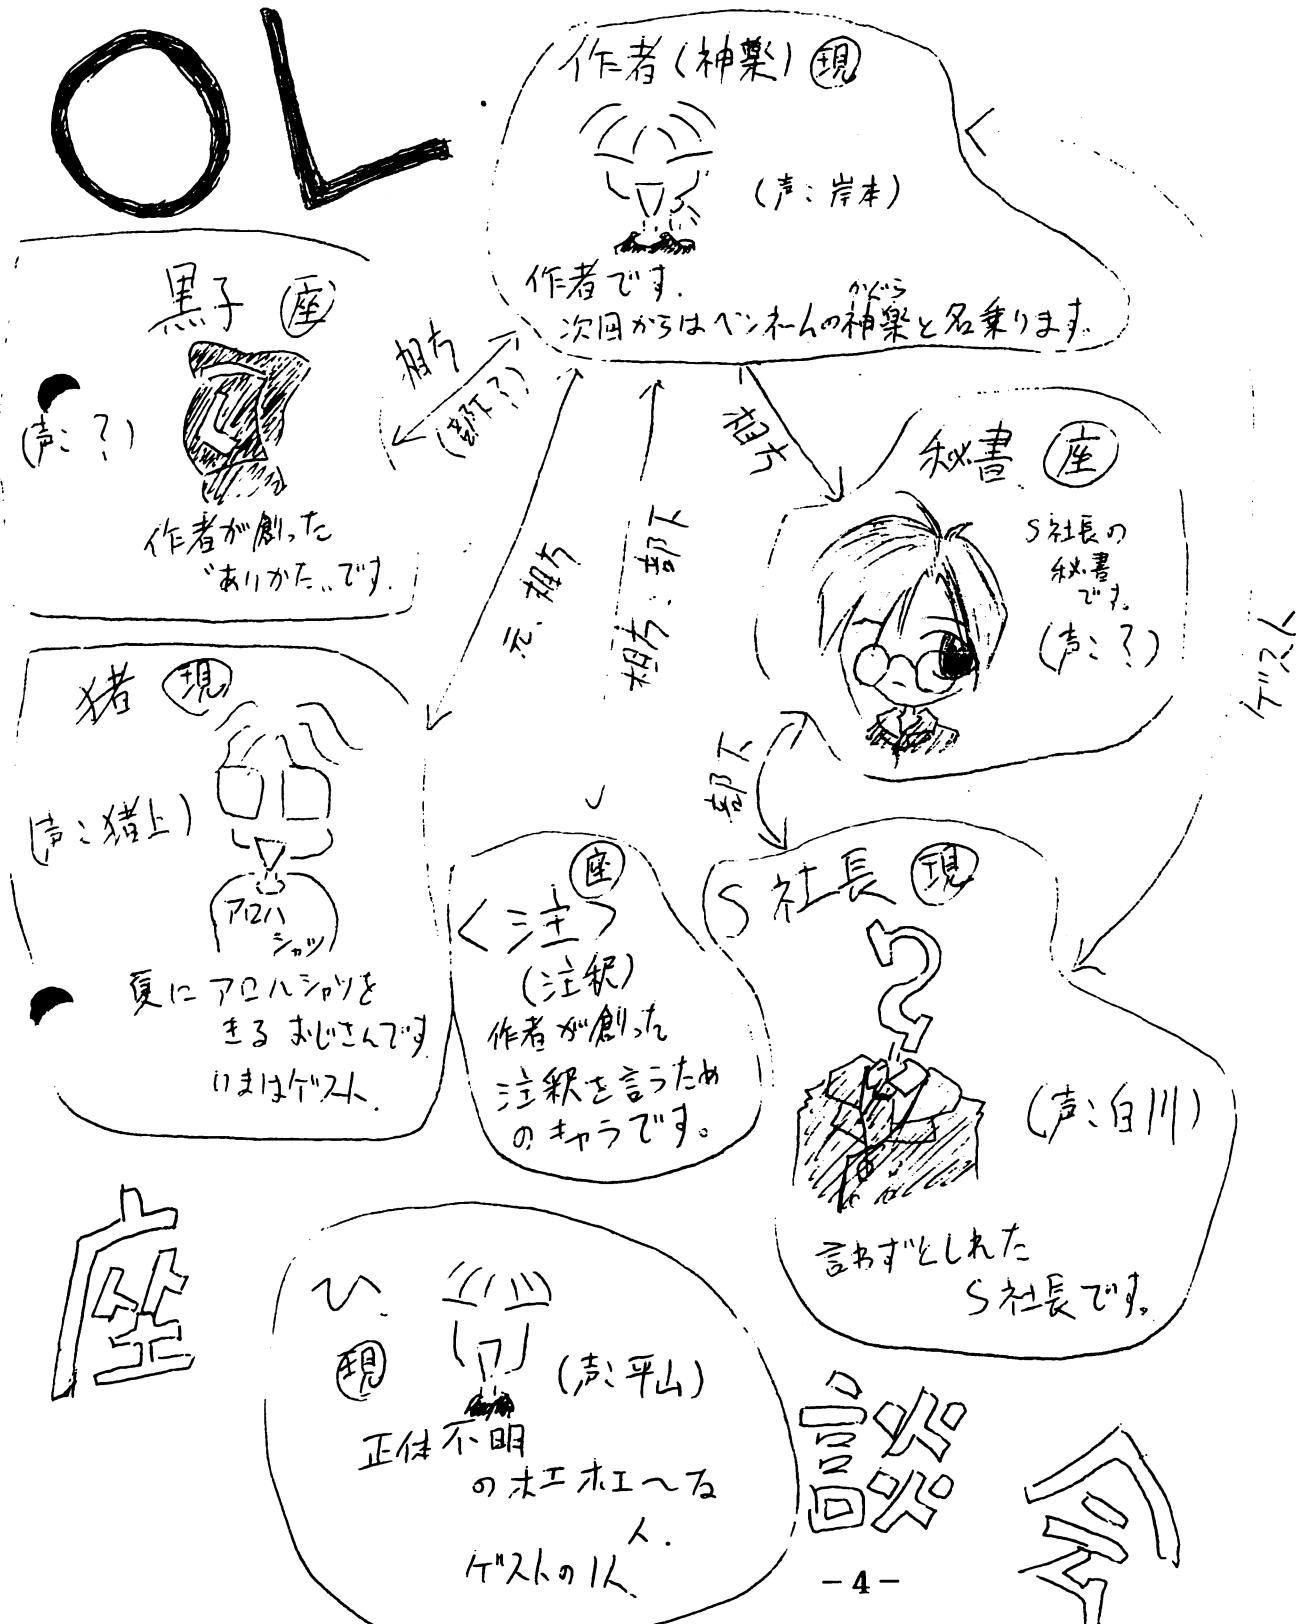 OL
作者(神楽) 現
(声:岸本)
作者です.
かぐら
次回からはペンネームの神楽と名乗ります.
黒子 座
(声:?)
作者が創った
“ありかた„です.
相方
(部下?)
相方
元.相方
相方:部下
秘書 座
S社長の
秘書
です.
(声:?)
ゲスト
部下
猪 現
(声:猪上)
アロハ
シャツ
夏にアロハシャツを
きるおじさんです
いまはゲスト.
座
<注>
(注釈)
作者が創った
注釈を言うため
のキャラです。
S社長 現
?
(声:白川)
言わずとしれた
S社長です。
ひ.
現
(声:平山)
正体不明
のホエホエ〜な
人.
ゲストの1人.
座
談
会
-4-